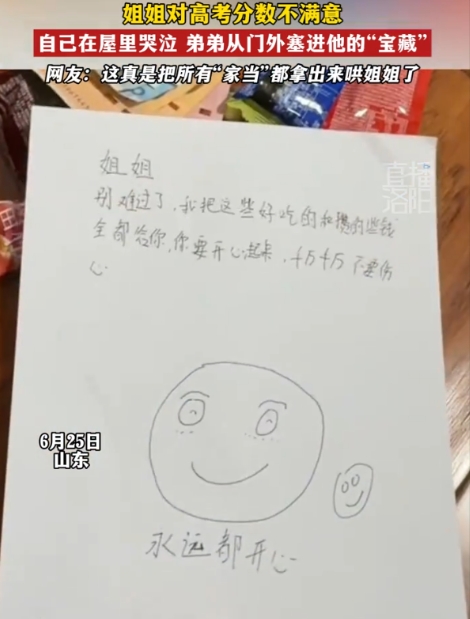 姐姐对高考分数不满意
自己在屋里哭泣 弟弟从门外塞进他的“宝藏”
网友：这真是把所有“家当”都拿出来哄姐姐了
直播
洛阳
姐姐
别难过了，我把这些好吃的和攒的些钱
全都给你，你要开心起来，千万千万不要伤
心
6月25日
山东
永远都开心